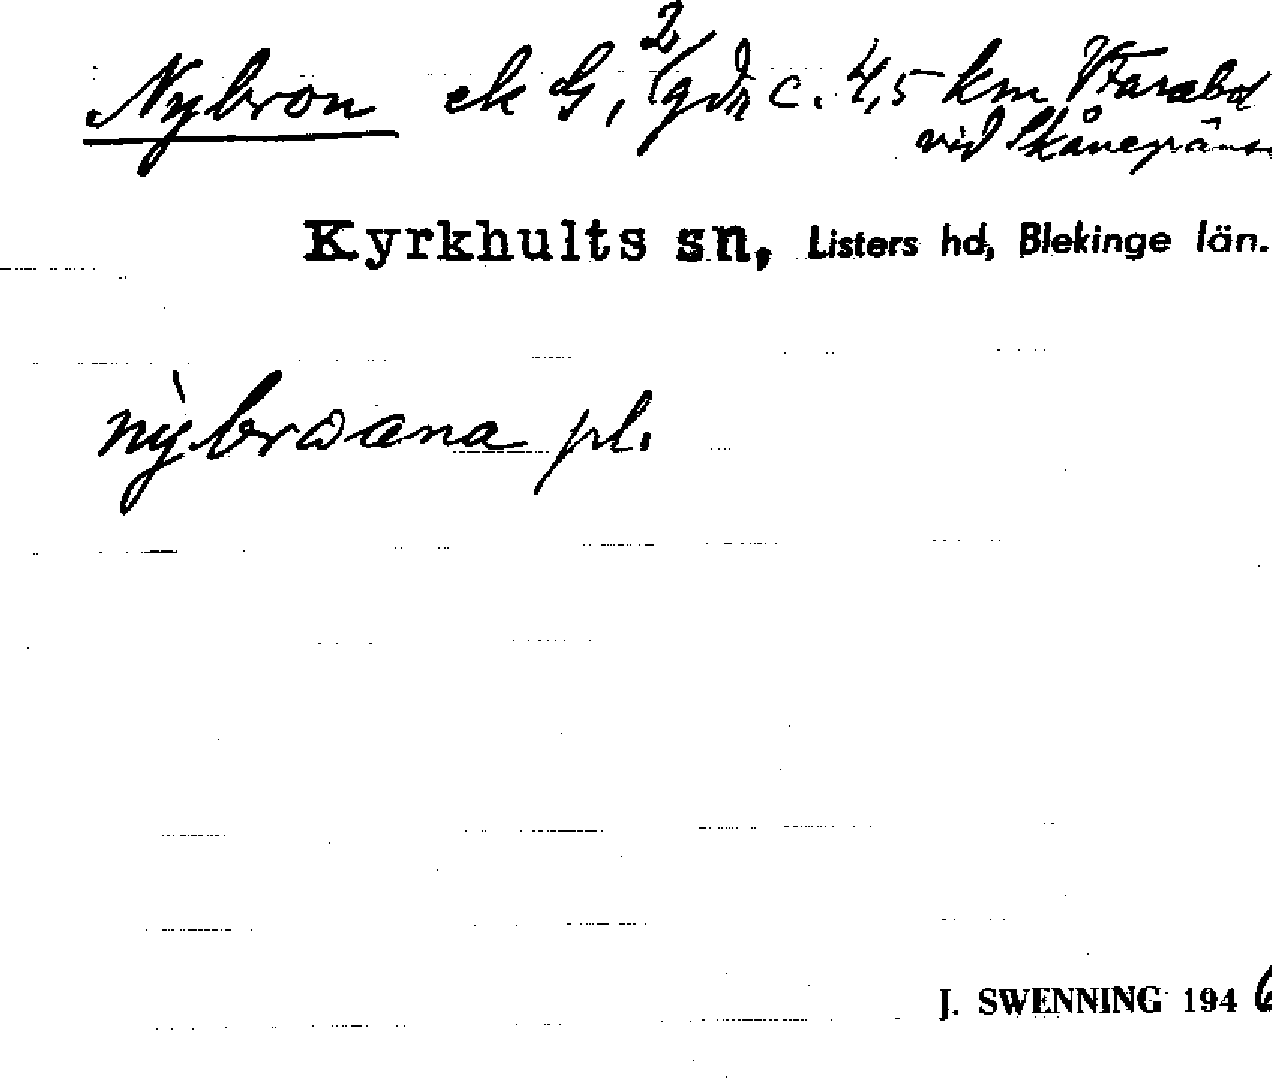 Nybron ek G, 2/gdr c. 4,5 km V Farabol
vid Skånegräns
Kyrkhults sn, Listers hd, Blekinge län.
nỳbrωana pl.
J. SWENNING 1946